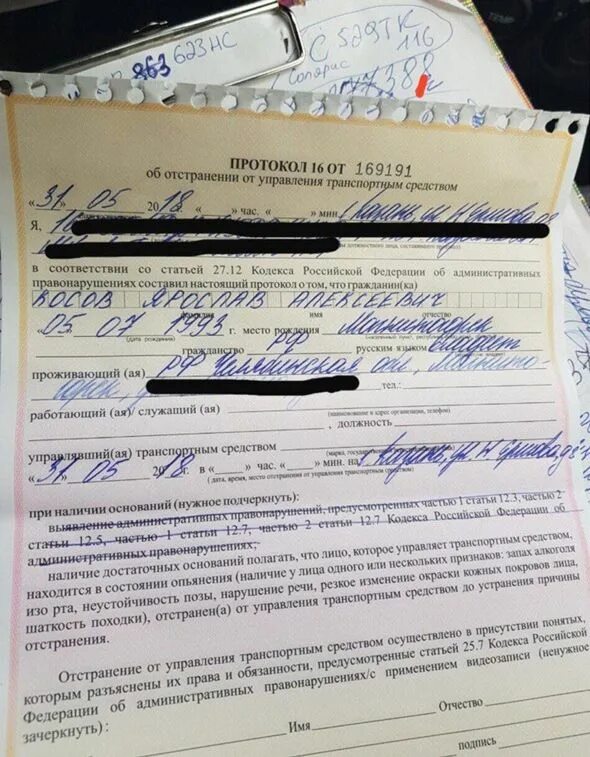 623НС
863
С 529ТК
116
Солярис
738
ПРОТОКОЛ 16 ОТ 169191
об отстранении от управления транспортным средством
«31» 05 2018 « » час. « » мин. г Казань, ул. Н. Ершова
Я,
(должностного лица, составившего протокол)
в соответствии со статьей 27.12 Кодекса Российской Федерации об административных
правонарушениях составил настоящий протокол о том, что гражданин(ка)
КОСОВ ЯРОСЛАВ АЛЕКСЕЕВИЧ
фамилия имя отчество
05 07 1993 г. место рождения Магнитогорск
(дата рождения)
гражданство РФ русским языком владеет
проживающий (ая) РФ Челябинская обл,
тел.:
работающий (ая)/ служащий (ая)
(наименование и адрес организации, телефон)
, должность
управлявший(ая) транспортным средством
«31» 05 2018 г. в « » час. « » мин. на г Казань, ул. Н. Ершова
(дата, время, место отстранения от управления транспортным средством)
при наличии оснований (нужное подчеркнуть):
выявление административных правонарушений, предусмотренных частью 1 статьи 12.3, частью 2
статьи 12.5, частью 1 статьи 12.7, частью 2 статьи 12.7 Кодекса Российской Федерации об
административных правонарушениях;
наличие достаточных оснований полагать, что лицо, которое управляет транспортным средством,
находится в состоянии опьянения (наличие у лица одного или нескольких признаков: запах алкоголя
изо рта, неустойчивость позы, нарушение речи, резкое изменение окраски кожных покровов лица,
шаткость походки), отстранен(а) от управления транспортным средством до устранения причины
отстранения.
Отстранение от управления транспортным средством осуществлено в присутствии понятых,
которым разъяснены их права и обязанности, предусмотренные статьей 25.7 Кодекса Российской
Федерации об административных правонарушениях/с применением видеозаписи (ненужное
зачеркнуть) :
Имя Отчество
подпись